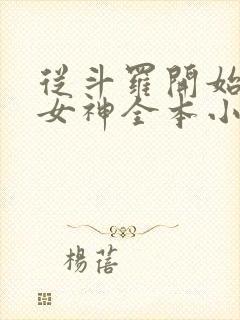 從斗羅開始
女神全本小
楊蓓